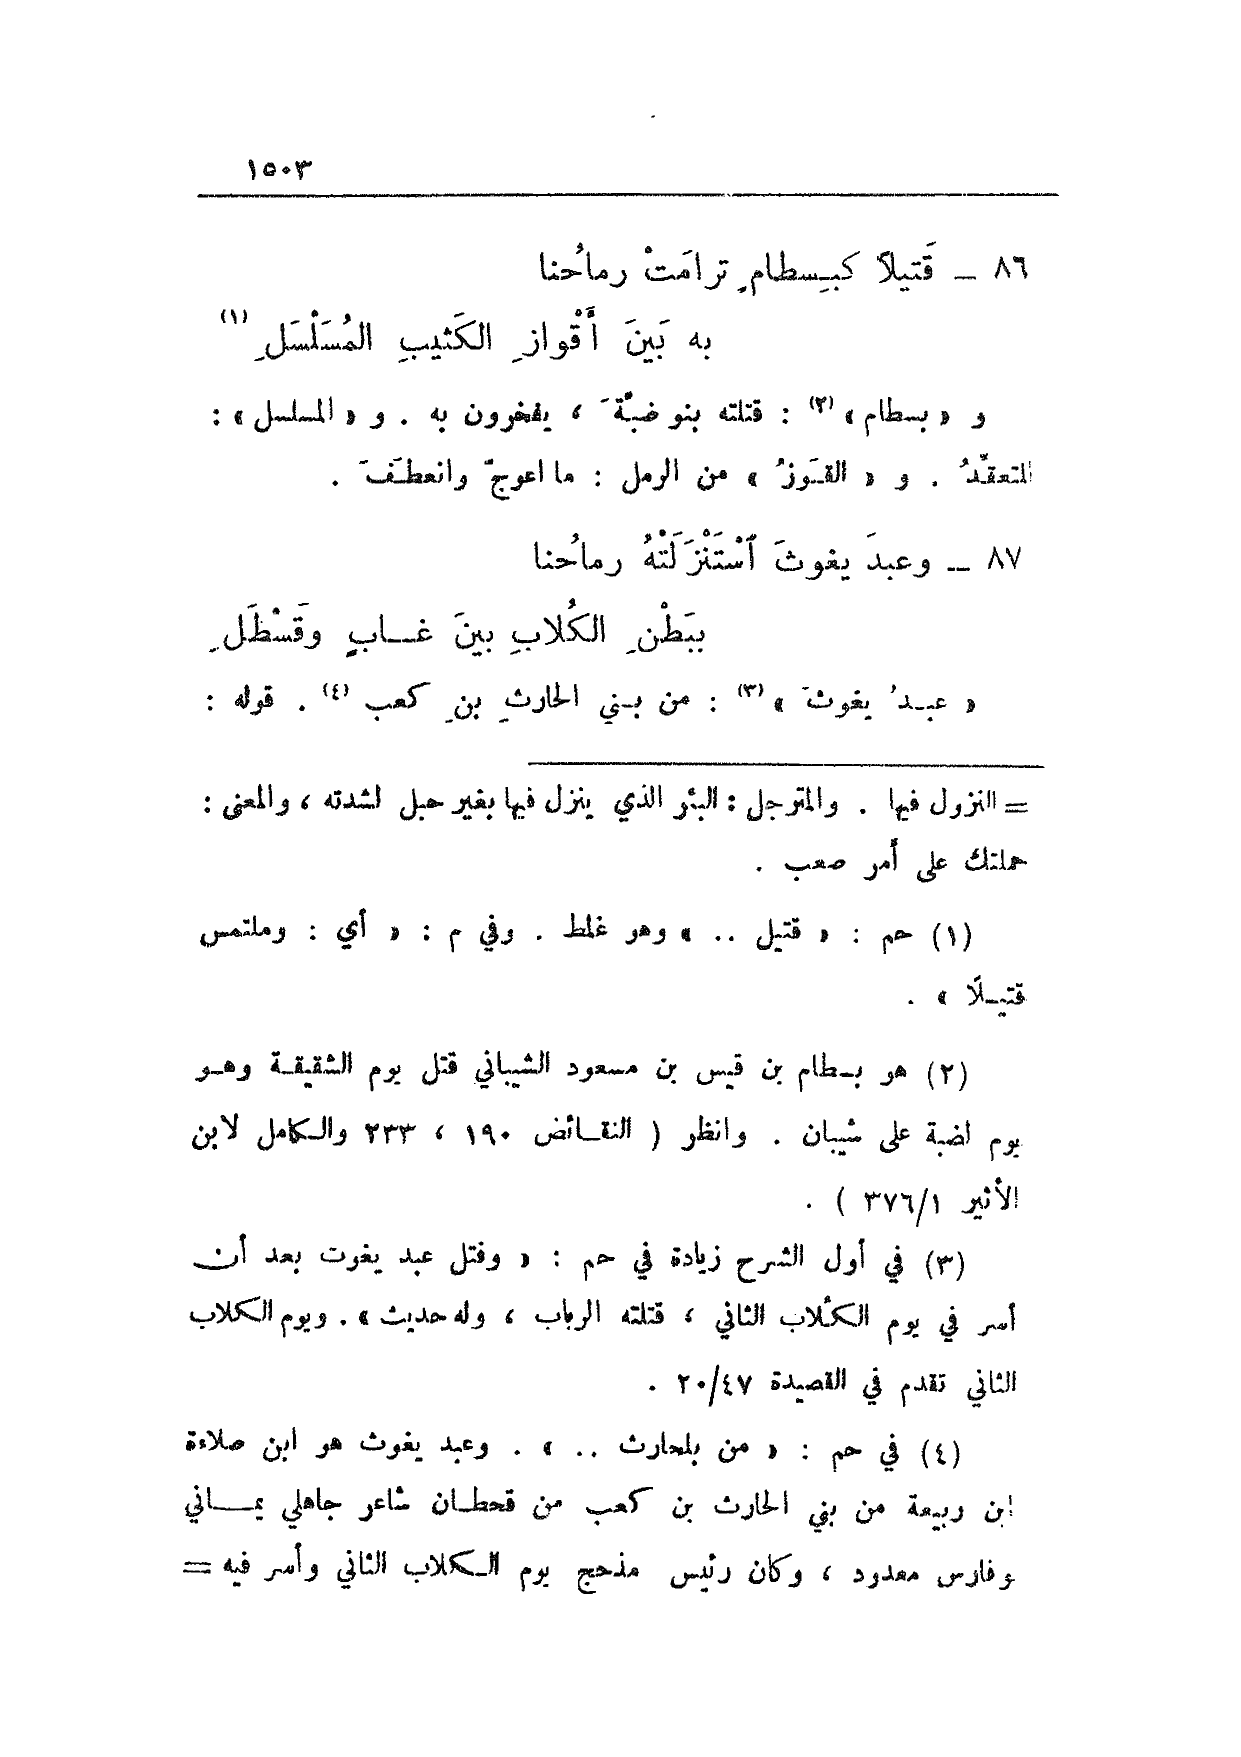 ١٥٠٣
٨٦ ـ قَتيلاً كبِسطامٍ ترامَتْ رماحُنا
به بَينَ أَقْوازِ الكَثيبِ المُسَلْسَلِ (١)
و « بسطام » (٢) : قتلته بنو ضبَّةَ ، يفخرون به . و « المسلسل » :
المتعقّدُ . و « القَوزُ » من الرمل : ما اعوجّ وانعطَفَ .
٨٧ ـ وعبدَ يغوثَ ٱسْتَنْزَلَتْهُ رماحُنا
ببَطْنِ الكُلابِ بينَ غــابٍ وقَسْطَلِ
« عبـدُ يغوثَ » (٣) : من بـني الحارثِ بنِ كعب (٤) . قوله :
= النزول فيها . والمترجل : البئر الذي ينزل فيها بغير حبل لشدته ، والمعنى :
حملتك على أمر صعب .
(١) حم : « قتيل .. » وهو غلط . وفي م : « أي : وملتمس
قتيـلًا » .
(٢) هو بـسطام بن قيس بن مسعود الشيباني قتل يوم الشقيقـة وهـو
يوم لضبة على شيبان . وانظر ( النقـائض ١٩٠ ، ٢٣٣ والـكامل لابن
الأثير ٣٧٦/١ ) .
(٣) في أول الشرح زيادة في حم : « وقتل عبد يغوث بعد أن
أسر في يوم الكُلاب الثاني ، قتلته الرباب ، وله حديث » . ويوم الكلاب
الثاني تقدم في القصيدة ٢٠/٤٧ .
(٤) في حم : « من بلحارث .. » . وعبد يغوث هو ابن صلاءة
ابن ربيعة من بني الحارث بن كعب من قحطـان شاعر جاهلي يمــاني
وفارس معدود ، وكان رئيس مذحج يوم الـكلاب الثاني وأسر فيه =